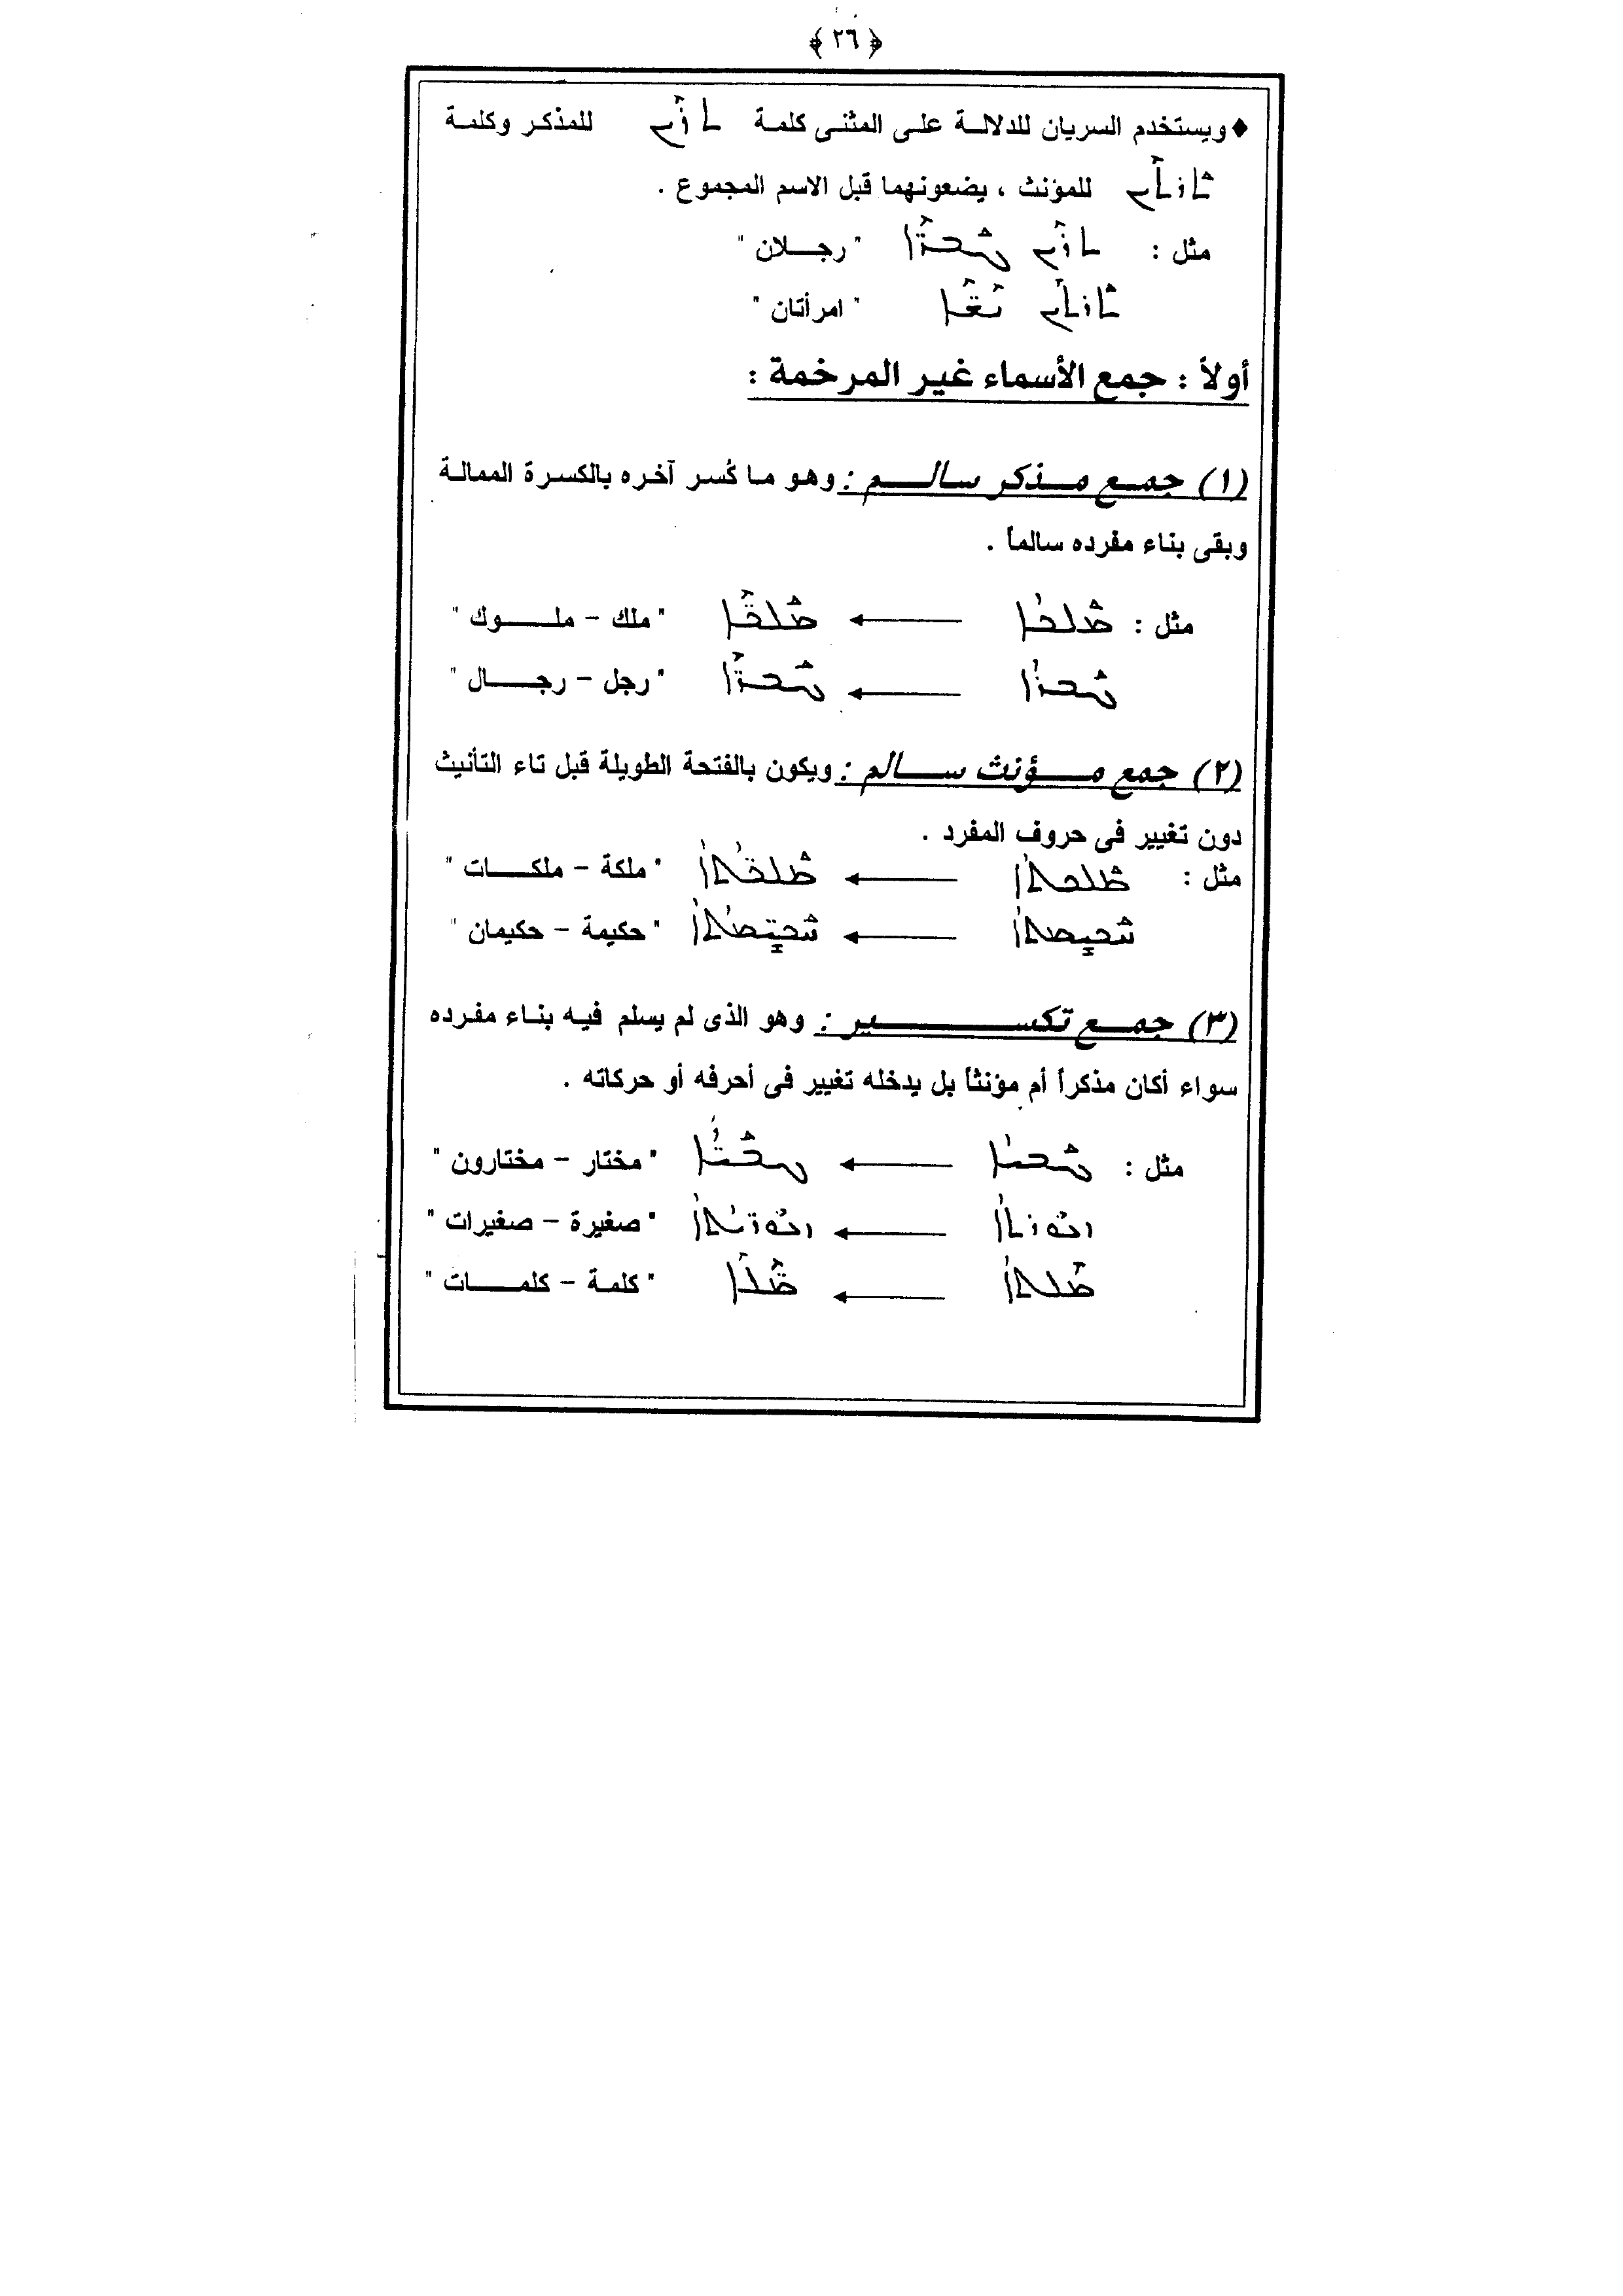 ﴿ ٢٦ ﴾
♦ ويستخدم السريان للدلالة على المثنى كلمة ܬܪܶܝܢ للمذكر وكلمة
ܬܰܪܬܶܝܢ للمؤنث ، يضعونهما قبل الاسم المجموع .
مثل : ܬܪܶܝܢ ܓܰܒܪ̈ܶܐ " رجلان "
ܬܰܪܬܶܝܢ ܢܶܫ̈ܶܐ " امرأتان "
أولاً : جمع الأسماء غير المرخمة :
(١) جمع مذكر سالم : وهو ما كُسر آخره بالكسرة الممالة
وبقى بناء مفرده سالماً .
مثل : ܡܰܠܟܳܐ ← ܡܰܠܟ̈ܶܐ " ملك – ملوك "
ܓܰܒܪܳܐ ← ܓܰܒܪ̈ܶܐ " رجل – رجال "
(٢) جمع مؤنث سالم : ويكون بالفتحة الطويلة قبل تاء التأنيث
دون تغيير فى حروف المفرد .
مثل : ܡܰܠܟܬܳܐ ← ܡܰܠܟ̈ܳܬܳܐ " ملكة – ملكات "
ܚܰܟܺܝܡܬܳܐ ← ܚܰܟܺܝ̈ܡܳܬܳܐ " حكيمة – حكيمان "
(٣) جمع تكسير : وهو الذى لم يسلم فيه بناء مفرده
سواء أكان مذكراً أم مؤنثاً بل يدخله تغيير فى أحرفه أو حركاته .
مثل : ܓܰܒܝܳܐ ← ܓܒܰܝ̈ܳܐ " مختار – مختارون "
ܙܥܽܘܪܬܳܐ ← ܙܥܽܘܪ̈ܳܬܳܐ " صغيرة – صغيرات "
ܡܶܠܬܳܐ ← ܡܶܠ̈ܶܐ " كلمة – كلمات "